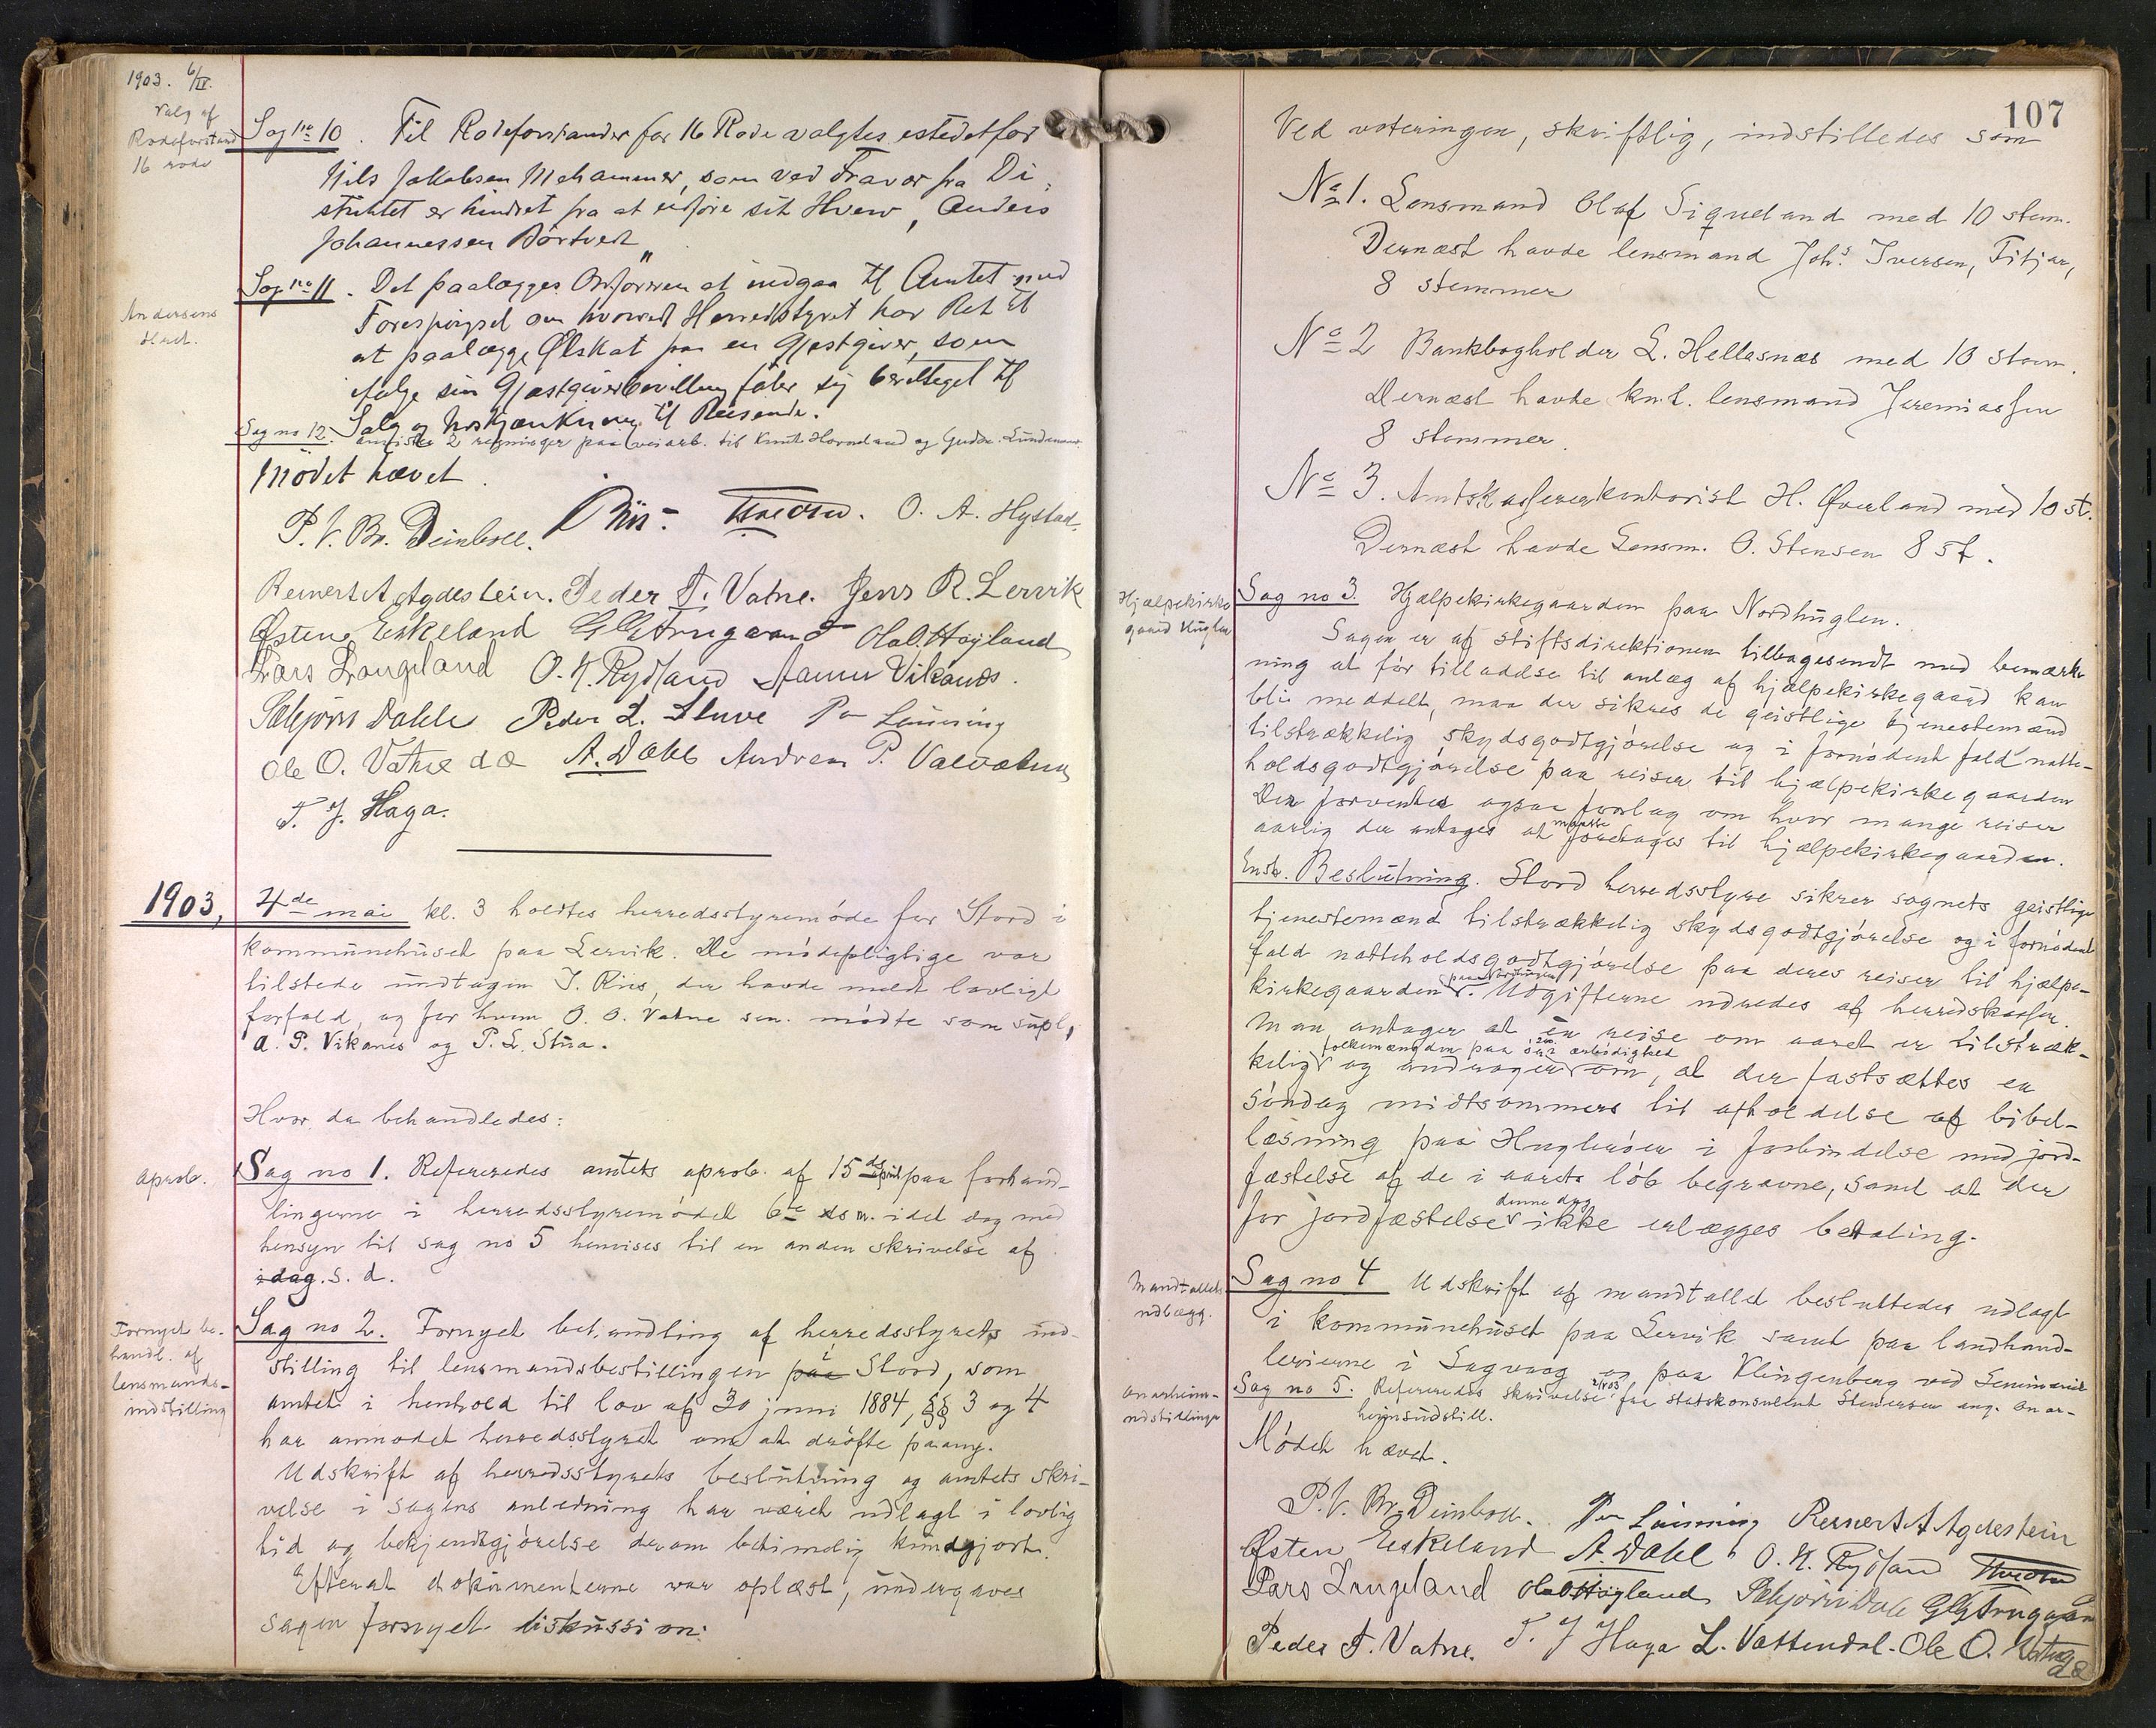 1903. 6/IV.
Valg af
Rodeforstand
16 rode
Sag no 10. Til Rodeforstander for 16 Rode valgtes istedetfor
Nils Jakobsen Mehammer, som ved Fravær fra Di-
striktet er hindret fra at udføre sit Hverv, Anders
Johannessen Dørtvedt
Andersens
Sag no 11. Det paalægges Ordføreren at indgaa til Amtet med
Forespørgsel om hvorvidt Herredsstyret har Ret til
at paalægge Ølskat paa en Gjæstgiver, som
ifølge sin Gjæstgiverbevilling føler sig berettiget til
Salg og Udskjænkning til Reisende.
Sag no 12. anviste 2 regninger paa veiarb. til Knut Hovedland og Gudm. Lundemann
Mødet hævet.
P. V. Br. Deinboll. J Riis. O. A. Hystad.
Reinert A Agdestein. Peder T. Vatne. Jens R. Lervik
Østen Eskeland Ole O. Høyland
Lars Langeland O. K. Rydland Vikanes.
Sæbjørn Dahle Peder L. Stuve Per Lønning
Ole O. Vatne d æ A. Dahl Andreas P. Valvatne
T. J. Haga.
1903, 4de mai kl. 3 holdtes herredsstyremøde for Stord i
kommunehuset paa Lervik. De mødepligtige var
tilstede undtagen J. Riis, der havde meldt lovligt
forfald, og for hvem O. O. Vatne sen. mødte som supl.,
A. P. Vikanes og P. L. Stua.
Hvor da behandledes:
aprob.
Sag no 1. Refereredes amtets aprob. af 15de april paa forhand-
lingerne i herredsstyremødet 6te ds m. idet dog med
hensyn til sag no 5 henvises til en anden skrivelse af
idag. s. d.
Fornyet be-
handl. af
lensmands-
indstilling
Sag no 2. Fornyet behandling af herredsstyrets ind-
stilling til lensmandsbestillingen paa i Stord, som
amtet i henhold til lov af 30 juni 1884, §§ 3 og 4
har anmodet herredsstyret om at drøfte paany.
Udskrift af herredsstyrets beslutning og amtets skri-
velse i sagens anledning har været udlagt i lovlig
tid og bekjendtgjørelse derom betimelig kundgjort.
Efterat dokumenterne var oplæst, undergaves
sagen fornyet diskussion:
107
Ved voteringen, skriftlig, indstilledes som
No 1. Lensmand Olaf Siqveland med 10 stem.
Dernæst havde lensmand Johs. Iversen, Fitjar,
8 stemmer
No 2 Bankbogholder L. Hellasnæs med 10 stem.
Dernæst havde kst. lensmand Jeremiassen
8 stemmer.
No 3. Amtskasserérkontorist H. Øverland med 10 st.
Dernæst havde Lensm. O. Stensen 8 st.
Hjælpekirke
gaard Huglen
Sag no 3. Hjælpekirkegaarden paa Nordhuglen.
Sagen er af stiftsdirektionen tilbagesendt med bemærk
ning at før tilladelse til anlæg af hjælpekirkegaard kan
bli meddelt, maa der sikres de geistlige tjenestemænd
tilstrækkelig skydsgodtgjørelse og i fornødent fald natte-
holdsgodtgjørelse paa reiser til hjælpekirkegaarden
Der forventes ogsaa forslag om hvor mange reiser
aarlig der antages at maatte foretages til hjælpekirkegaarden.
Enst. Beslutning. Stord herredsstyre sikrer sognets geistlige
tjenestemænd tilstrækkelig skydsgodtgjørelse og i fornødent
fald natteholdsgodtgjørelse paa deres reiser til hjælpe-
kirkegaarden. Udgifterne udredes af herredskassen.
Man antager at én reise om aaret er tilstræk-
kelig og andrager om, at der fastsættes en
folkemængden paa øen ærbødighed
søndag midtsommers til afholdelse af bibel-
læsning paa Huglerøen i forbindelse med jord-
fæstelse af de i aarets løb begravne, samt at der
for jordfæstelse denne dag ikke erlægges betaling.
Mandtallets
udlægg.
Sag no 4 Udskrift af mandtallet besluttedes udlagt
i kommunehuset paa Lervik samt paa landhand-
lerierne i Sagvaag og paa Klingenberg ved Seminariet
Sag no 5. Refereredes skrivelse fra statskonsulent Stenersen ang. Onar-
heimsudstill.
Onarheim-
udstillingen
Mødet hævet.
P. V. Br. Deinboll. Per Lønning Reinert A Agdestein
Østen Eskeland A. Dahl O. K. Rydland
Lars Langeland Ole O Høyland Sæbjørn Dale
Peder T. Vatne. T. J Haga L. Vattendal. Ole O. Vatne d æ